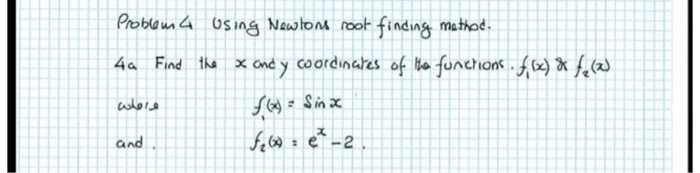 Problem 4 Using Newtons root finding method.
4a Find the x and y coordinates of the functions. f₁(x) & f₂(x)
where f₁(x) = Sin x
and. f₂(x) = eˣ - 2.